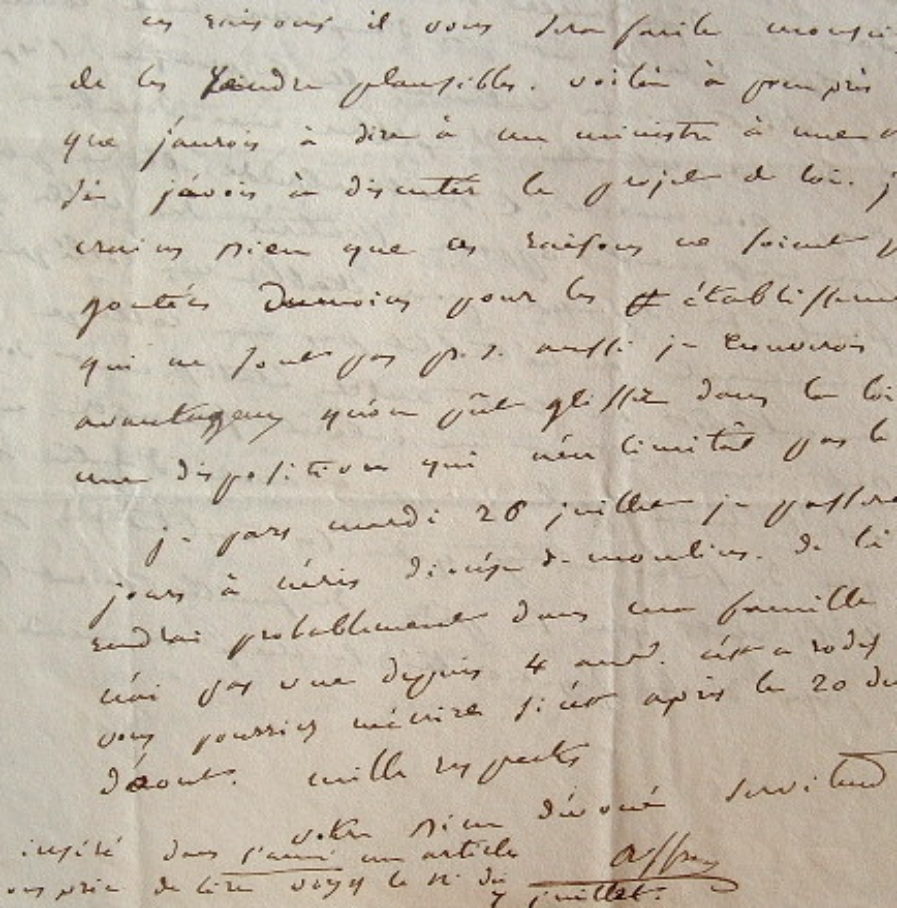 ces raisons il vous sera facile monsie
de les rendre plausibles. voilà à peu près
que j'aurois à dire à un ministre à une
si j'avois à discuter le projet de loi. j
crains bien que ces raisons ne soient p
goutées dumoins pour les établisseme
qui ne sont pas aussi je trouverois
avantageux qu'on pût glisser dans la loi
une disposition qui n'en limitât pas le
je pars mardi 26 juillet je passere
jours à néris diocèse de moulins. de là
rendrai probablement dans ma famille
n'ai pas vue depuis 4 ans. c'est a rodez
vous pourriez m'écrire si c'est après le 20 du
d'aout. mille respects
votre bien dévoué serviteur
affre
inséré dans l'ami un article
ous prie de lire voyez le n° du
7 juillet.